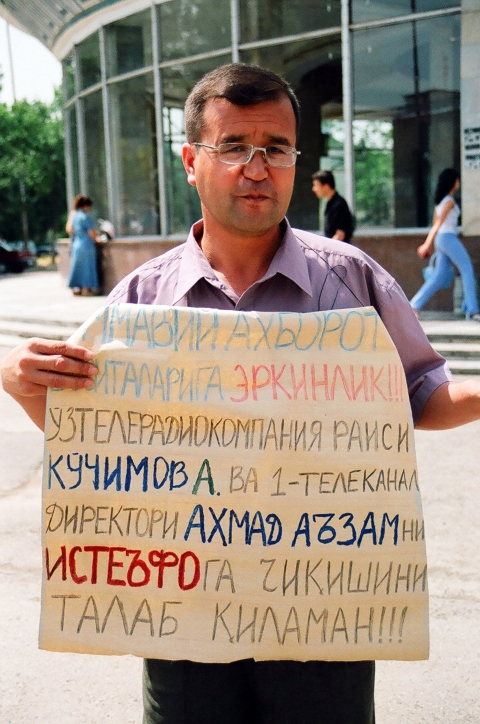 ММАВИЙ АХБОРОТ
ВОСИТАЛАРИГА ЭРКИНЛИК!!!
УЗТЕЛЕРАДИОКОМПАНИЯ РАИСИ
КУЧИМОВ А. ВА 1-ТЕЛЕКАНАЛ
ДИРЕКТОРИ АХМАД АЪЗАМНИ
ИСТЕЪФОГА ЧИҚИШИНИ
ТАЛАБ ҚИЛАМАН!!!